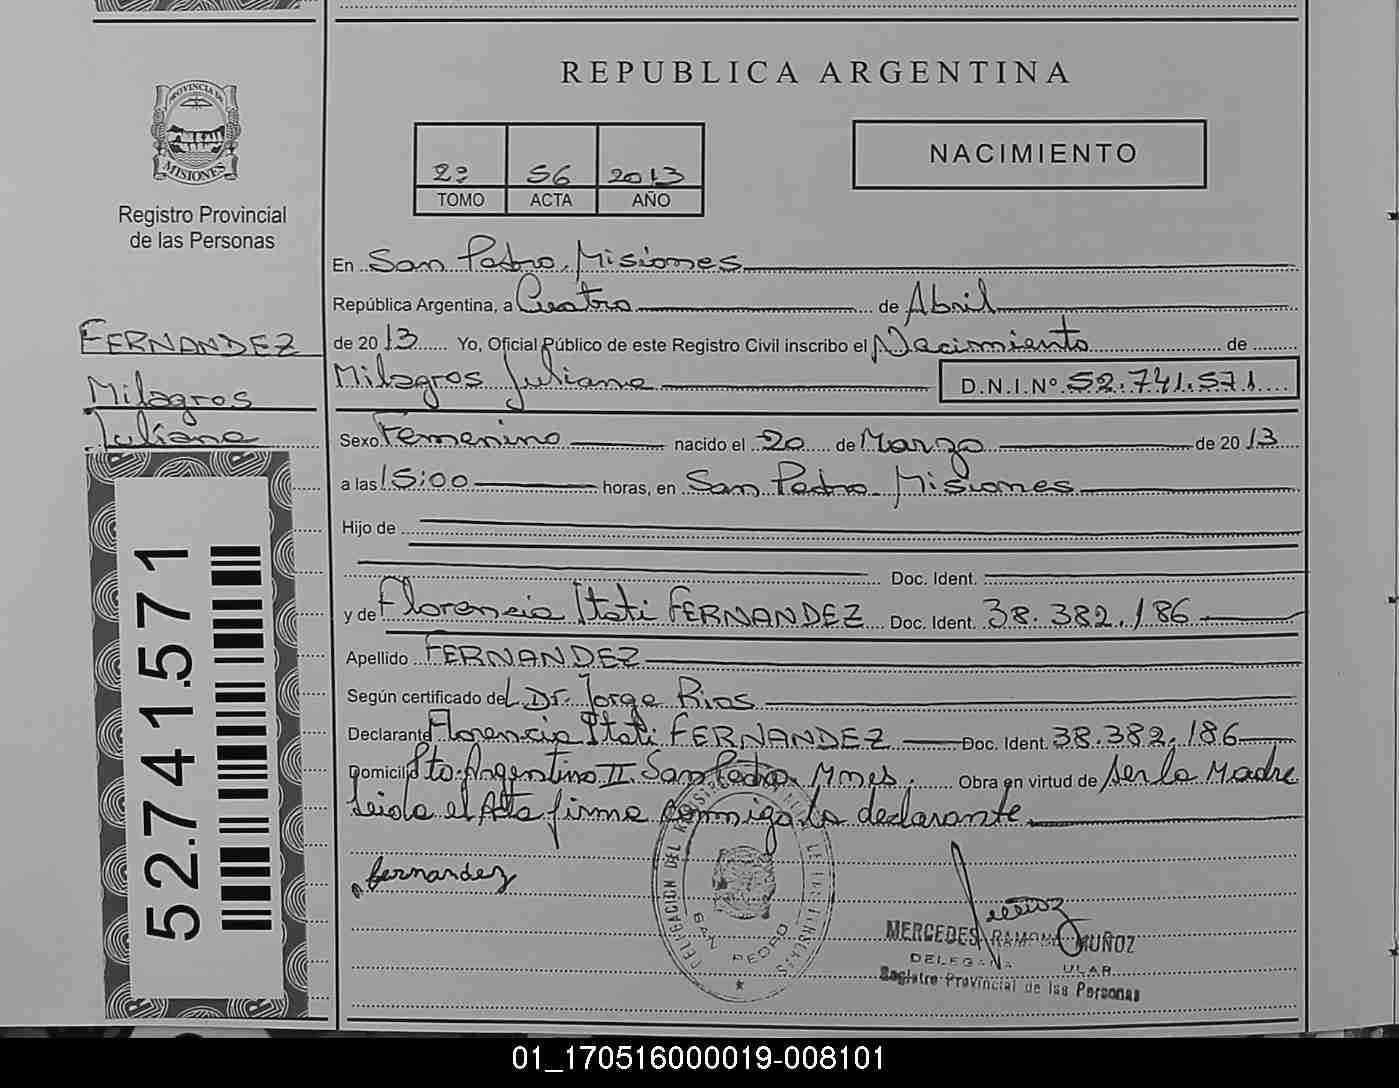 REPUBLICA ARGENTINA
PROVINCIA DE
MISIONES
Registro Provincial
de las Personas
2º 56 2013
TOMO ACTA AÑO
NACIMIENTO
En San Pedro, Misiones
República Argentina, a Cuatro de Abril
de 2013 Yo, Oficial Público de este Registro Civil inscribo el Nacimiento de
Milagros Juliana D.N.I.Nº 52.741.571
Sexo Femenino nacido el 20 de Marzo de 2013
a las 15:00 horas, en San Pedro Misiones
Hijo de
Doc. Ident.
y de Florencia Itati FERNANDEZ Doc. Ident. 38.382.186
Apellido FERNANDEZ
Según certificado del Dr. Jorge Rios
Declarante Florencia Itati FERNANDEZ Doc. Ident. 38.382.186
Domicilio Pto. Argentino II San Pedro Mnes. Obra en virtud de ser la Madre
leida el Acta firma conmigo la declarante
FERNANDEZ
Milagros
Juliana
52.741.571
fernandez
DELEGACION DEL REGISTRO DE LAS PERSONAS
SAN PEDRO
MERCEDES RAMONA MUÑOZ
Registro Provincial de las Personas
01_170516000019-008101